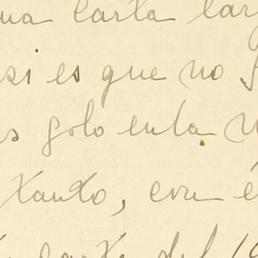 ua carta lar
si es que no
s solo enta
Xanto, con é
carta del 19